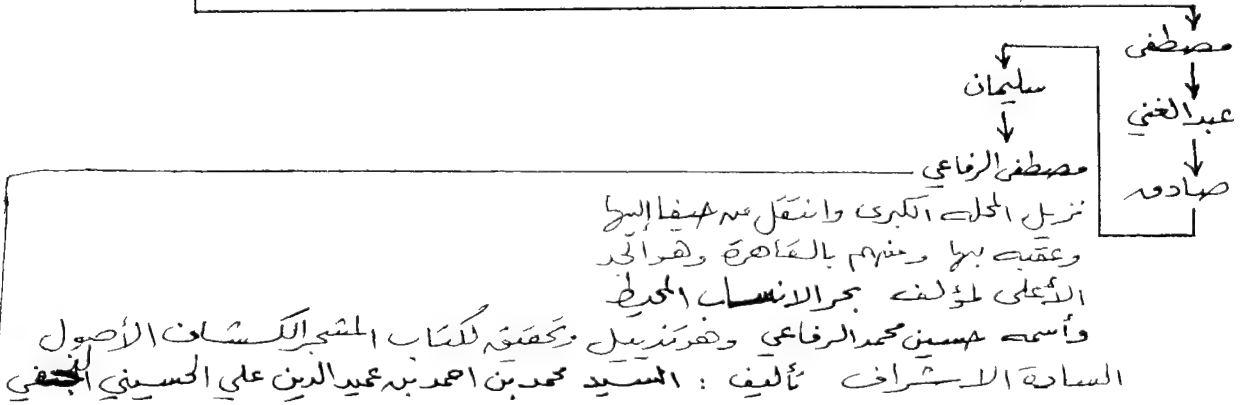 مصطفى
عبدالغني
صادق
سليمان
مصطفى الرفاعي
نزيل المحله الكبرى وانتقل من صيفا إليها
وعقبه بها ومنهم بالقاهرة وهو الجد
الأعلى لمؤلف بحر الانساب المحيط
وأسمه حسين محمد الرفاعي وهو تذييل وتحقيق لكتاب المشجر الكشاف الأصول
السادة الاشراف تأليف : السيد محمد بن احمد بن عميد الدين علي الحسيني النجفي